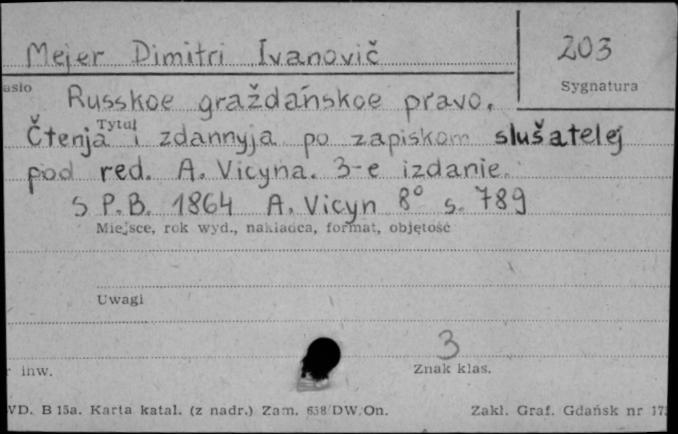 Mejer Dimitri Ivanovič 203
asło Sygnatura
Russkoe graždańskoe pravo.
Tytuł
Čtenja i zdannyja po zapiskom slušatelej
pod red. A. Vicyna. 3-e izdanie.
S P.B. 1864 A. Vicyn 8° s. 789
Miejsce, rok wyd., nakładca, format, objętość
Uwagi
3
r inw. Znak klas.
WD. B 15a. Karta katal. (z nadr.) Zam. 658/DW/On. Zakł. Graf. Gdańsk nr 173